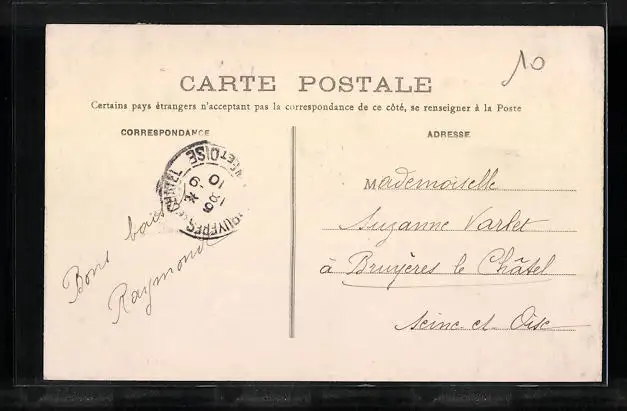 10
CARTE POSTALE
Certains pays étrangers n'acceptant pas la correspondance de ce côté, se renseigner à la Poste
CORRESPONDANCE
ADRESSE
Bons bais
Raymond
Mademoiselle
Suzanne Varlet
à Bruyères le Châtel
Seine et Oise